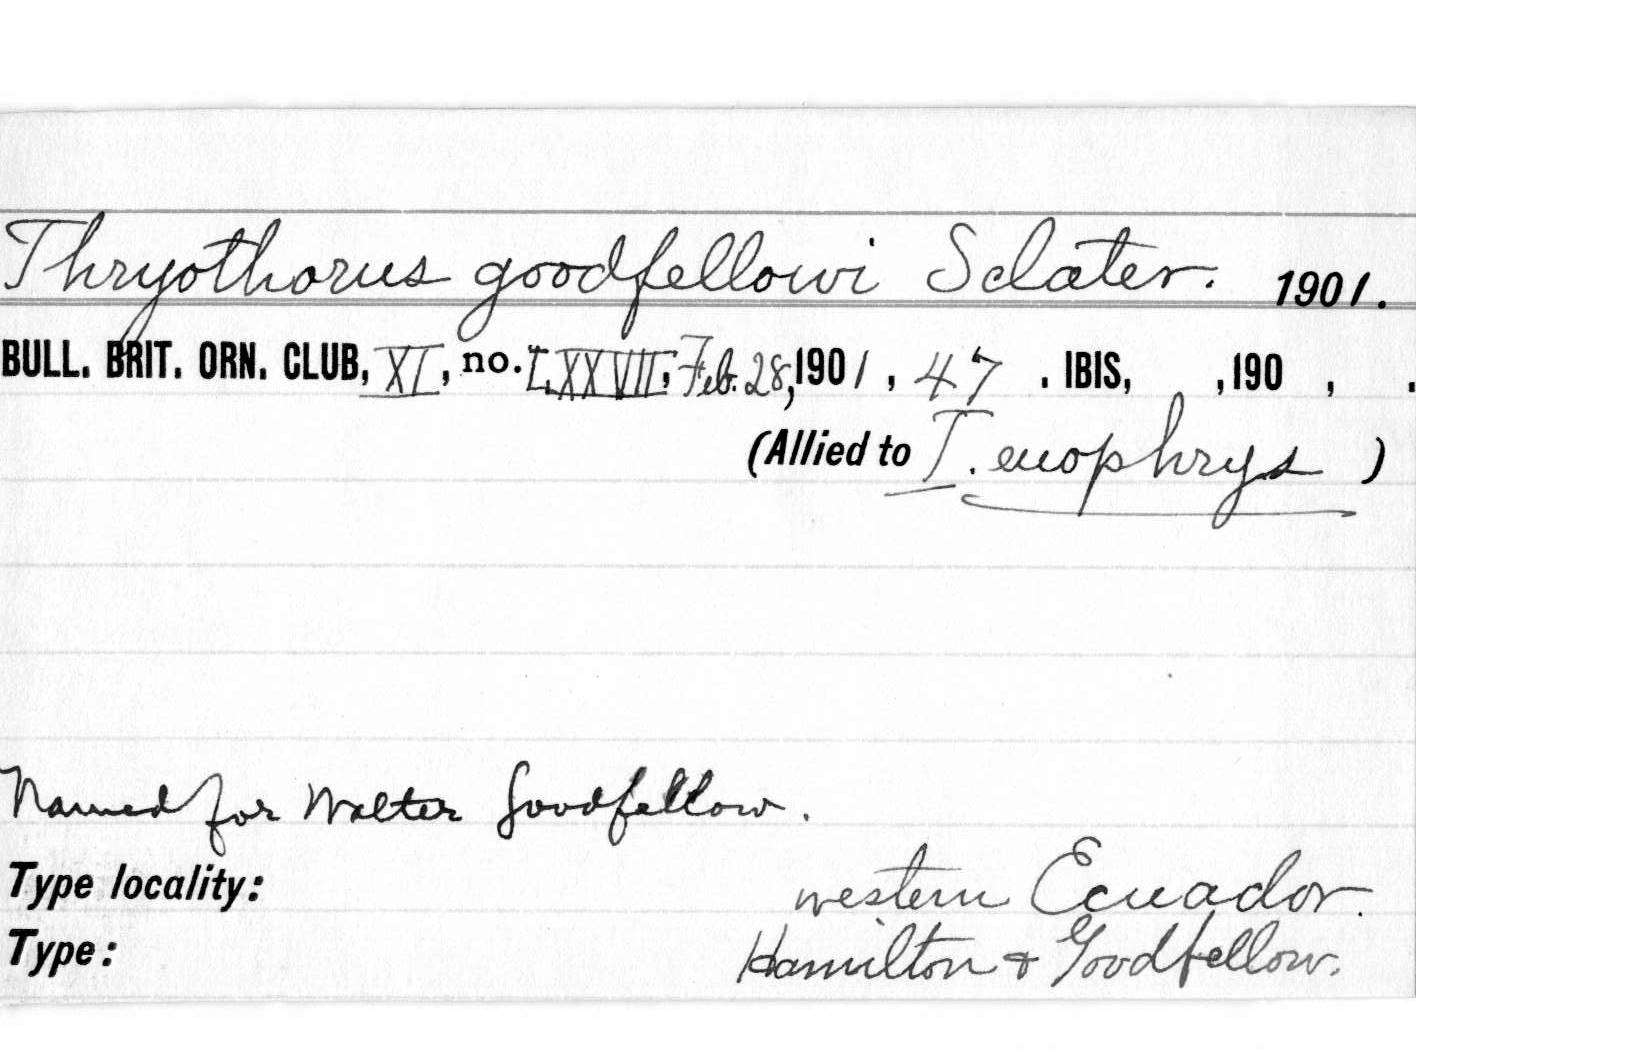 Thryothorus goodfellowi Sclater. 1901.
BULL. BRIT. ORN. CLUB, XI, no. LXXVII, Feb. 28, 1901, 47 . IBIS, , 190 , .
(Allied to T. euophrys )
Named for Walter Goodfellow.
Type locality: western Ecuador.
Type: Hamilton & Goodfellow.